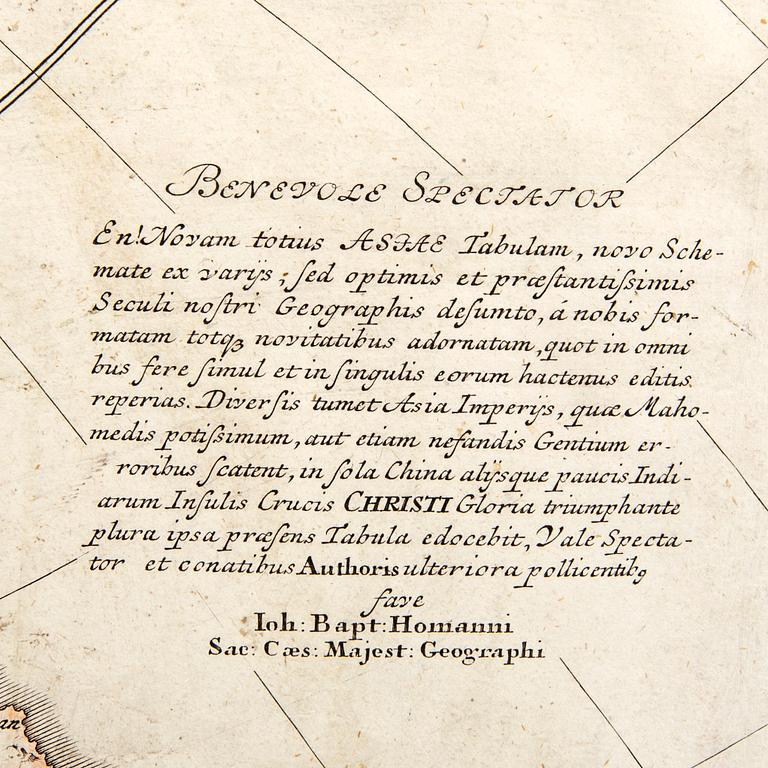 BENEVOLE SPECTATOR
En! Novam totius ASIAE Tabulam, novo Sche-
mate ex varijs, ſed optimis et præſtantiſsimis
Seculi noſtri Geographis deſumto, á nobis for-
matam totq₃ novitatibus adornatam, quot in omni
bus fere ſimul et in ſingulis eorum hactenus editis
reperias. Diverſis tumet Asia Imperijs, quæ Maho-
medis potiſsimum, aut etiam nefandis Gentium er-
roribus ſcatent, in ſola China alijsque paucis Indi-
arum Inſulis Crucis CHRISTI Gloria triumphante
plura ipsa præſens Tabula edocebit, Vale Specta-
tor et conatibus Authoris ulteriora pollicentibꝫ
fave
Ioh: Bapt: Homanni
Sac: Cæs: Majest: Geographi
an